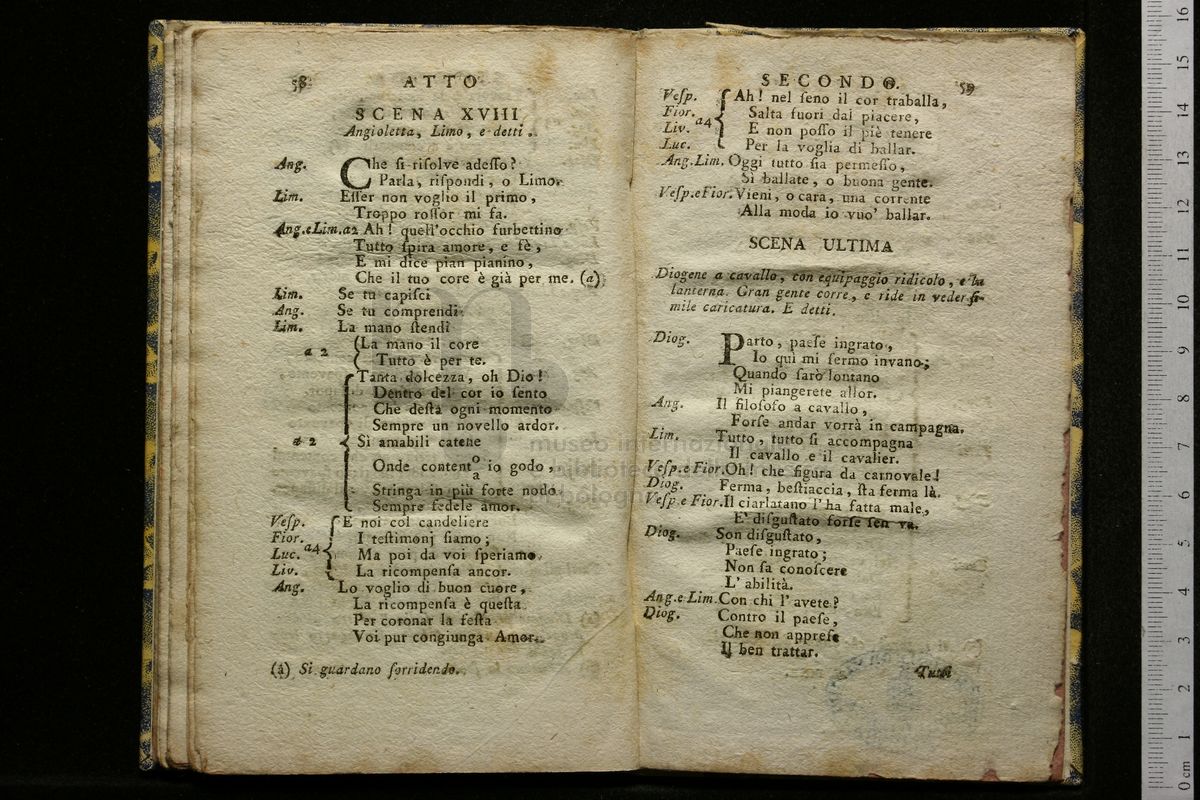 58 ATTO
SCENA XVIII.
Angioletta, Limo, e detti.
Ang. Che si risolve adesso?
Parla, rispondi, o Limo.
Lim. Esser non voglio il primo,
Troppo rossor mi fa.
Ang.e Lim.a2 Ah! quell'occhio furbettino
Tutto spira amore, e fè,
E mi dice pian pianino,
Che il tuo core è già per me. (a)
Lim. Se tu capisci
Ang. Se tu comprendi
Lim. La mano stendi
a 2 (La mano il core
( Tutto è per te.
Tanta dolcezza, oh Dio!
Dentro del cor io sento
Che desta ogni momento
Sempre un novello ardor.
a 2 Sì amabili catene
Onde content o/a io godo,
Stringa in più forte nodo
Sempre fedele amor.
Vesp. E noi col candeliere
Fior. I testimonj siamo;
Luc. a4 Ma poi da voi speriamo,
Liv. La ricompensa ancor.
Ang. Lo voglio di buon cuore,
La ricompensa è questa
Per coronar la festa
Voi pur congiunga Amor.
(a) Si guardano sorridendo.
SECONDO. 59
Vesp. Ah! nel seno il cor traballa,
Fior. Salta fuori dal piacere,
Liv. a4 E non posso il piè tenere
Luc. Per la voglia di ballar.
Ang.Lim. Oggi tutto sia permesso,
Si ballate, o buona gente.
Vesp.e Fior. Vieni, o cara, una corrente
Alla moda io vuo' ballar.
SCENA ULTIMA
Diogene a cavallo, con equipaggio ridicolo, e la
lanterna. Gran gente corre, e ride in veder si-
mile caricatura. E detti.
Diog. Parto, paese ingrato,
Io quì mi fermo invano;
Quando sarò lontano
Mi piangerete allor.
Ang. Il filosofo a cavallo,
Forse andar vorrà in campagna.
Lim. Tutto, tutto si accompagna
Il cavallo e il cavalier.
Vesp.e Fior. Oh! che figura da carnovale!
Diog. Ferma, bestiaccia, sta ferma là.
Vesp.e Fior. Il ciarlatano l'ha fatta male,
E' disgustato forse sen va.
Diog. Son disgustato,
Paese ingrato;
Non sa conoscere
L'abilità.
Ang.e Lim. Con chi l'avete?
Diog. Contro il paese,
Che non apprese
Il ben trattar.
Tutti